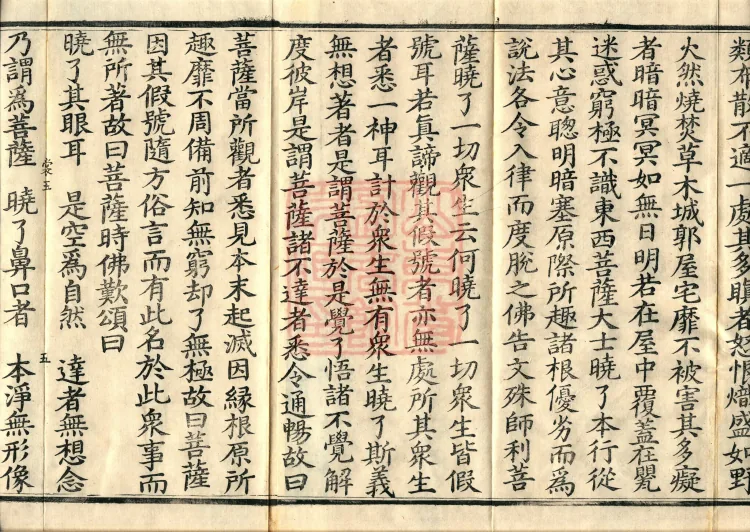 類布散不適一處其多瞋者怒恨熾盛如野
火然燒焚草木城郭屋宅靡不被害其多癡
者暗暗冥冥如無日明若在屋中覆蓋在甖
迷惑窮極不識東西菩薩大士曉了本行從
其心意聰明暗塞原際所趣諸根優劣而為
說法各令入律而度脫之佛告文殊師利菩
薩曉了一切眾生云何曉了一切眾生皆假
號耳若真諦觀其假號者亦無處所其眾生
者悉一神耳計於眾生無有眾生曉了斯義
無想著者是謂菩薩於是覺了悟諸不覺解
度彼岸是謂菩薩諸不達者悉令通暢故曰
菩薩當所觀者悉見本末起滅因緣根原所
趣靡不周備前知無窮却了無極故曰菩薩
因其假號隨方俗言而有此名於此眾事而
無所著故曰菩薩時佛歎頌曰
曉了其眼耳 是空為自然 達者無想念
裳五 五
乃謂為菩薩 曉了鼻口者 本淨無形像